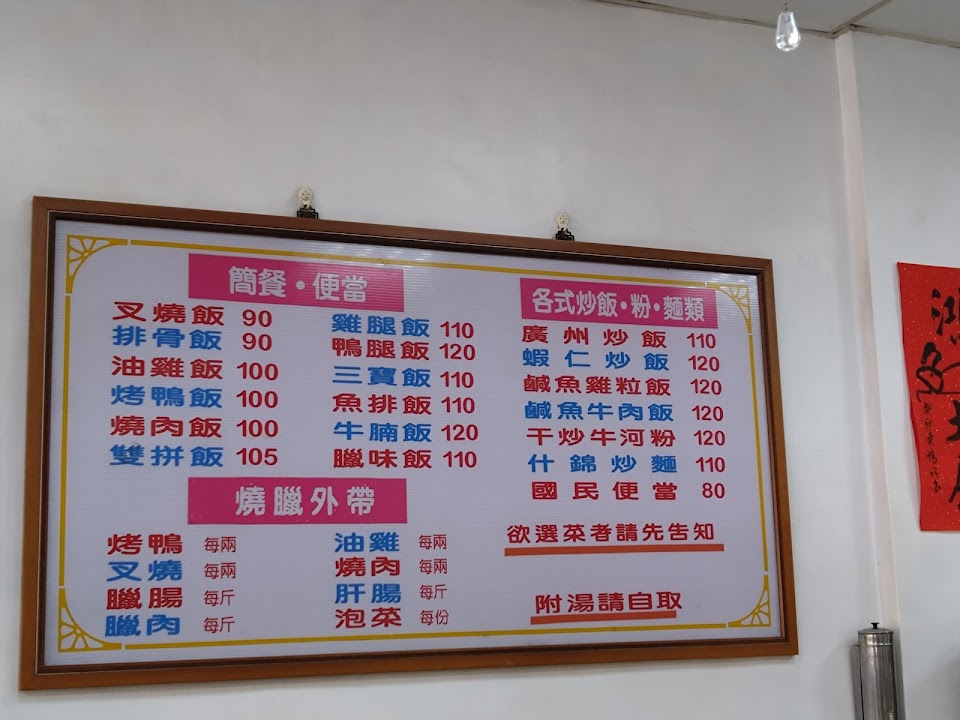 簡餐・便當
叉燒飯 90
排骨飯 90
油雞飯 100
烤鴨飯 100
燒肉飯 100
雙拼飯 105
雞腿飯 110
鴨腿飯 120
三寶飯 110
魚排飯 110
牛腩飯 120
臘味飯 110
燒臘外帶
烤鴨 每兩
叉燒 每兩
臘腸 每斤
臘肉 每斤
油雞 每兩
燒肉 每兩
肝腸 每斤
泡菜 每份
各式炒飯・粉・麵類
廣州炒飯 110
蝦仁炒飯 120
鹹魚雞粒飯 120
鹹魚牛肉飯 120
干炒牛河粉 120
什錦炒麵 110
國民便當 80
欲選菜者請先告知
附湯請自取
鴻